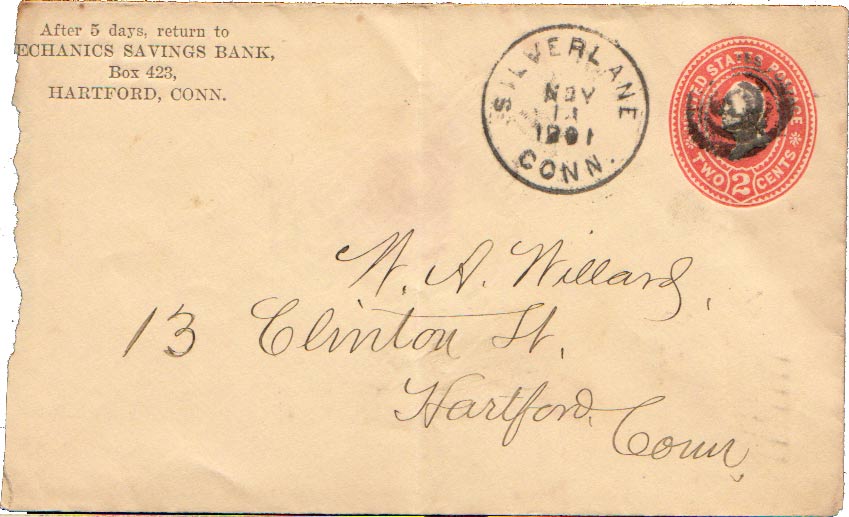 After 5 days, return to
ECHANICS SAVINGS BANK,
Box 423,
HARTFORD, CONN.
SILVERLANE
NOV
1901
CONN.
ED STATES POSTAGE
TWO 2 CENTS
W. A. Willard,
13 Clinton St,
Hartford,
Conn,